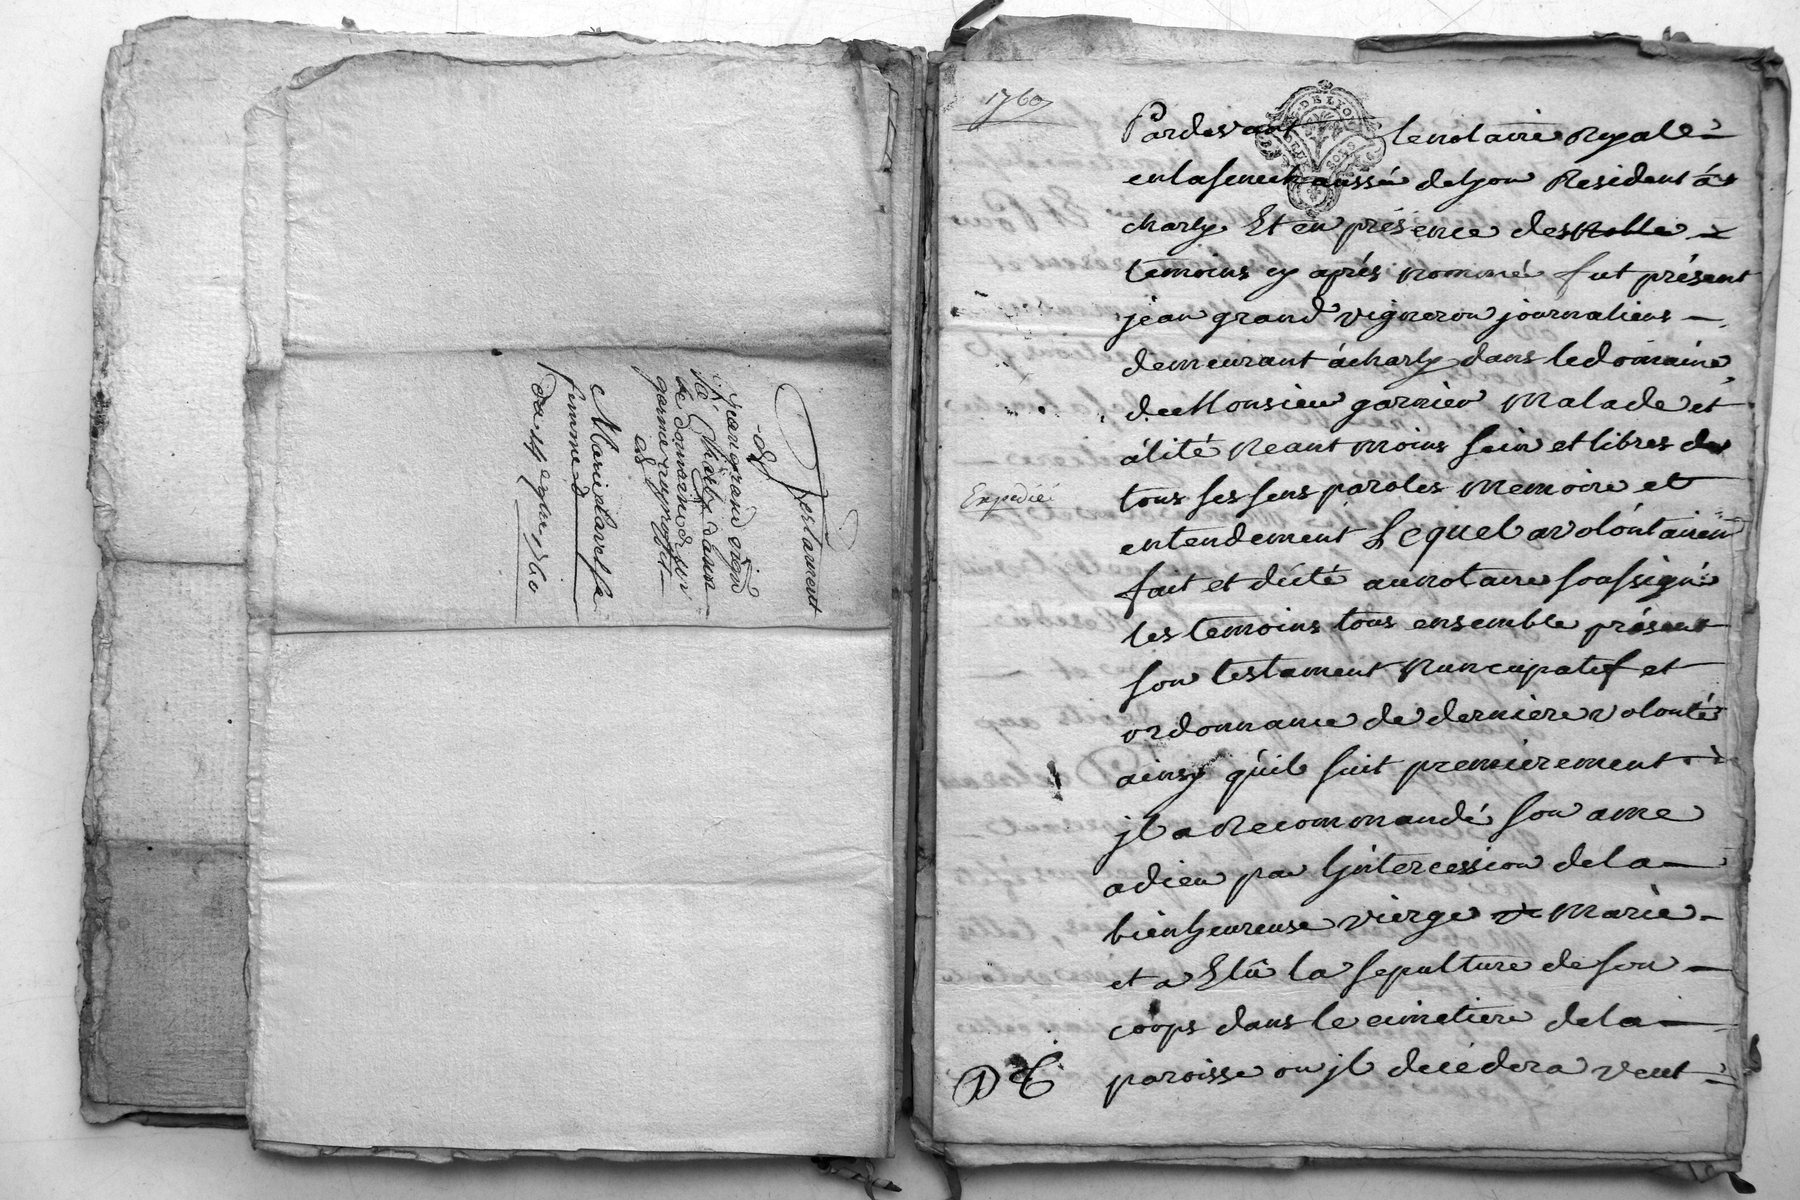 Testament
de
jean grand vigñ
de Charly dans
le domaine du sr
garnier
au
Marie
femme
du 14 1760
1760
Pardevant le notaire royale
en la senechaussée de lyon Resident á
charly Et en présence des
temoins cy aprés nommé fut présent
jean grand vigneron journaliers
demeurant á charly dans le domaine
de Monsieu garnier Malade et
álité Neant moins sain et libres de
Expedié
tous ses sens paroles Memoire et
entendement Lequel a volóntairemt
fait et dicté au notaire soussigné
les temoins tous ensemble présent
son testament Nuncupatif et
ordonnance de derniere volontés
ainsy qúil suit premierement
jl a Recommandé son ame
a dieu par l'intercession de la
bienheureuse vierge Marie
et a Elû la sepulture de son
corps dans le cimetiere de la
paroisse ou jl decédera veut
DE LYON
SOLS